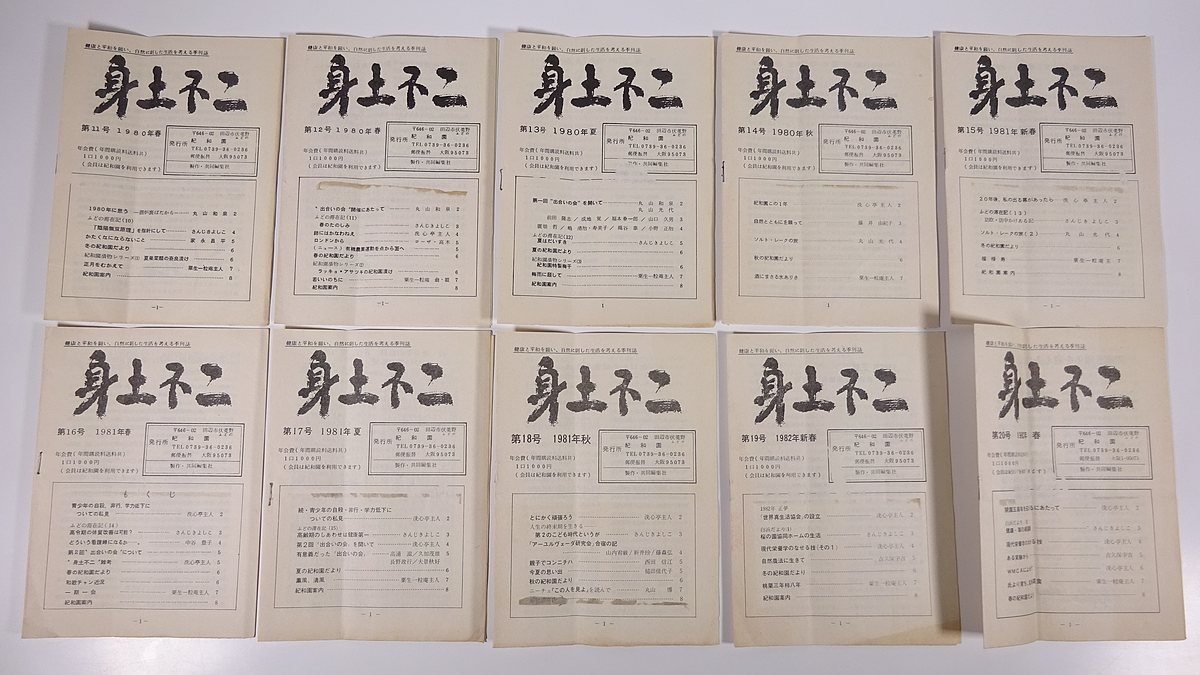 健康と平和を願い、自然に則した生活を考える季刊誌
身土不二
第11号 1980年春
年会費(年間購読料送料共)
1口1000円
(会員は紀和園を利用できます)
発行所
〒646-02 田辺市伏菟野
紀和園
TEL0739-36-0236
郵便振替 大阪95073
製作・共同編集社
1980年に思う 丸山和泉 2
ふどの滞在記(10)
「陰陽無双原理」を指針にして さんじきよしこ 4
かたくなにならないこと 家永昌平 5
冬の紀和園だより 6
紀和園漬物シリーズ① 夏巣菜館の奈良漬け
正月をむかえて 粟生一粒庵主人 7
紀和園案内 8
—1—
健康と平和を願い、自然に則した生活を考える季刊誌
身土不二
第12号 1980年春
年会費(年間購読料送料共)
1口1000円
(会員は紀和園を利用できます)
発行所
〒646-02 田辺市伏菟野
紀和園
TEL0739-36-0236
郵便振替 大阪95073
製作・共同編集社
"出合いの会"開催にあたって 丸山和泉 2
ふどの滞在記(11)
春のたのしみ さんじきよしこ 3
詩にはかなわねえ 洗心亭主人 4
ロンドンから コーザ・高木 5
(ニュース)有機農業運動を点から面へ 5
春の紀和園だより 6
紀和園漬物シリーズ②
ラッキョ・アサツキの紀和園漬け 6
若いいのちに 粟生一粒庵 7
紀和園案内 8
—1—
健康と平和を願い、自然に則した生活を考える季刊誌
身土不二
第13号 1980年夏
年会費(年間購読料送料共)
1口1000円
(会員は紀和園を利用できます)
発行所
〒646-02 田辺市伏菟野
紀和園
TEL0739-36-0236
郵便振替 大阪95073
製作・共同編集社
第一回"出合いの会"を開いて 丸山和泉 2
丸山光代
ふどの滞在記(12)
夏はだいすき さんじきよしこ 5
夏の紀和園だより 6
紀和園漬物シリーズ③
紀和園特製梅干 6
梅雨に話して 粟生一粒庵主人 7
紀和園案内 8
1
健康と平和を願い、自然に則した生活を考える季刊誌
身土不二
第14号 1980年秋
年会費(年間購読料送料共)
1口1000円
(会員は紀和園を利用できます)
発行所
〒646-02 田辺市伏菟野
紀和園
TEL0739-36-0236
郵便振替 大阪95073
製作・共同編集社
紀和園この1年 洗心亭主人 2
自然とともにを願って 藤井由紀子 3
ソルト・レークの旅 丸山光代 4
秋の紀和園だより 6
酒にまさる水あり 粟生一粒庵主人 7
紀和園案内 8
健康と平和を願い、自然に則した生活を考える季刊誌
身土不二
第15号 1981年新春
年会費(年間購読料送料共)
1口1000円
(会員は紀和園を利用できます)
発行所
〒646-02 田辺市伏菟野
紀和園
TEL0739-36-0236
郵便振替 大阪95073
製作・共同編集社
20年後、私の出る幕があったら 洗心亭主人 2
ふどの滞在記(13)
さんじきよしこ 3
ソルト・レークの旅(2) 丸山光代 4
冬の紀和園だより 6
粟生一粒庵主 7
紀和園案内 8
—1—
健康と平和を願い、自然に則した生活を考える季刊誌
身土不二
第16号 1981年春
年会費(年間購読料送料共)
1口1000円
(会員は紀和園を利用できます)
発行所
〒646-02 田辺市伏菟野
紀和園
TEL0739-36-0236
郵便振替 大阪95073
製作・共同編集社
もくじ
青少年の自殺、非行、学力低下に
ついての私見 洗心亭主人 2
ふどの滞在記(14)
高令期の体質改善は可能? さんじきよしこ 3
どういう看護婦になるか 中谷豊子 4
第2回"出合いの会"について 5
"身土不二"雑考 洗心亭主人 5
春の紀和園だより 6
和歌チャン近況 6
一期一会 粟生一粒庵主人 7
紀和園案内 8
—1—
健康と平和を願い、自然に則した生活を考える季刊誌
身土不二
第17号 1981年夏
年会費(年間購読料送料共)
1口1000円
(会員は紀和園を利用できます)
発行所
〒646-02 田辺市伏菟野
紀和園
TEL0739-36-0236
郵便振替 大阪95073
製作・共同編集社
続・青少年の自殺・非行・学力低下に
ついての私見 洗心亭主人 2
ふどの滞在記(15)
高齢期のしあわせは健康第一 さんじきよしこ 3
第2回「出合いの会」を開いて 洗心亭主人 4
有意義だった「出合いの会」
長野政行/大景秋好
夏の紀和園だより 6
薫風、清風 粟生一粒庵主人 7
紀和園案内 8
—1—
健康と平和を願い、自然に則した生活を考える季刊誌
身土不二
第18号 1981年秋
年会費(年間購読料送料共)
1口1000円
(会員は紀和園を利用できます)
発行所
〒646-02 田辺市伏菟野
紀和園
TEL0739-36-0236
郵便振替 大阪95073
製作・共同編集社
とにかく頑張ろう 洗心亭主人 2
人生の終末期を生きる
第2のこども時代というが さんじきよしこ 3
"アーユルヴェーダ研究会"合宿の記
親子でコンニチハ 西田信江 5
今夏の思い出 稲田佳代子 5
秋の紀和園だより 6
ニーチェ「この人を見よ」を読んで 丸山博 7
8
—1—
健康と平和を願い、自然に則した生活を考える季刊誌
身土不二
第19号 1982年新春
年会費(年間購読料送料共)
1口1000円
(会員は紀和園を利用できます)
発行所
〒646-02 田辺市伏菟野
紀和園
TEL0739-36-0236
郵便振替 大阪95073
製作・共同編集社
1982年 正夢
「世界真生活協会」の設立 洗心亭主人 2
桜の園協同ホームの生活 さんじきよしこ 3
現代栄養学のなせる技(その1) 洗心亭主人 4
自然農法に生きて 5
冬の紀和園だより 6
桃栗三年柿八年 粟生一粒庵主人 7
紀和園案内 8
—1—
健康と平和を願い、自然に則した生活を考える季刊誌
身土不二
第20号 春
年会費(年間購読料送料共)
1口1000円
発行所
〒646-02 田辺市伏菟野
紀和園
TEL0739-36-0236
製作・共同編集社
洗心亭主人 2
さんじきよしこ 3
洗心亭主人 4
粟生一粒庵主人 7
春の紀和園だより 8
—1—